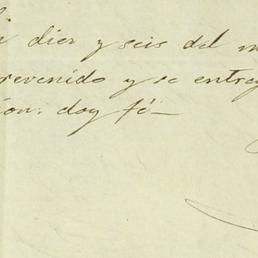 diez y seis del m
revenido y se entreg
ion. doy fé—